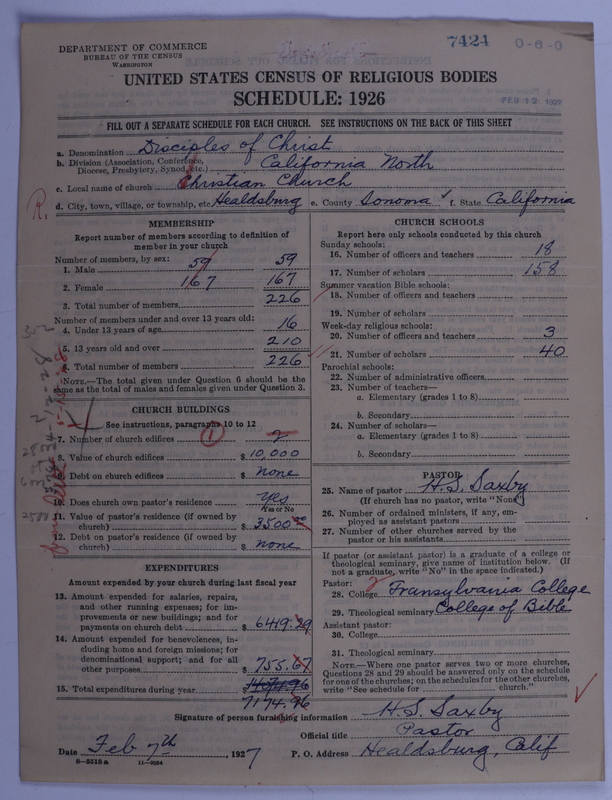 7424
0-6-0
FEB 12 1927
DEPARTMENT OF COMMERCE
BUREAU OF THE CENSUS
WASHINGTON
UNITED STATES CENSUS OF RELIGIOUS BODIES
SCHEDULE: 1926
FILL OUT A SEPARATE SCHEDULE FOR EACH CHURCH. SEE INSTRUCTIONS ON THE BACK OF THIS SHEET
a. Denomination Disciples of Christ
b. Division (Association, Conference, Diocese, Presbytery, Synod, etc.) California North
c. Local name of church Christian Church
d. City, town, village, or township, etc. Healdsburg e. County Sonoma f. State California
R.
MEMBERSHIP
Report number of members according to definition of
member in your church
Number of members, by sex:
1. Male 59 59
2. Female 167 167
3. Total number of members 226
Number of members under and over 13 years old:
4. Under 13 years of age 16
5. 13 years old and over 210
6. Total number of members 226
NOTE.—The total given under Question 6 should be the
same as the total of males and females given under Question 3.
CHURCH BUILDINGS
See instructions, paragraphs 10 to 12
7. Number of church edifices 1 2
8. Value of church edifices $ 10,000
9. Debt on church edifices $ None
10. Does church own pastor's residence Yes
Yes or No
11. Value of pastor's residence (if owned by
church) $ 3500 00
12. Debt on pastor's residence (if owned by
church) $ None
EXPENDITURES
Amount expended by your church during last fiscal year
13. Amount expended for salaries, repairs,
and other running expenses; for im-
provements or new buildings; and for
payments on church debt $ 6419.29
14. Amount expended for benevolences, in-
cluding home and foreign missions; for
denominational support; and for all
other purposes $ 755.67
15. Total expenditures during year $
7174.96
CHURCH SCHOOLS
Report here only schools conducted by this church
Sunday schools:
16. Number of officers and teachers 18
17. Number of scholars 158
Summer vacation Bible schools:
18. Number of officers and teachers
19. Number of scholars
Week-day religious schools:
20. Number of officers and teachers 3
21. Number of scholars 40
Parochial schools:
22. Number of administrative officers
23. Number of teachers—
a. Elementary (grades 1 to 8)
b. Secondary
24. Number of scholars—
a. Elementary (grades 1 to 8)
b. Secondary
PASTOR
25. Name of pastor H. S. Saxby
(If church has no pastor, write "None")
26. Number of ordained ministers, if any, em-
ployed as assistant pastors
27. Number of other churches served by the
pastor or his assistants
If pastor (or assistant pastor) is a graduate of a college or
theological seminary, give name of institution below. (If
not a graduate, write "No" in the space indicated.)
Pastor:
28. College Transylvania College
29. Theological seminary College of Bible
Assistant pastor:
30. College
31. Theological seminary
NOTE.—Where one pastor serves two or more churches,
Questions 28 and 29 should be answered only on the schedule
for one of the churches; on the schedules for the other churches,
write "See schedule for church."
Signature of person furnishing information H. S. Saxby
Official title Pastor
Date Feb 7th, 1927 P. O. Address Healdsburg, Calif
8—5518a 11—9034